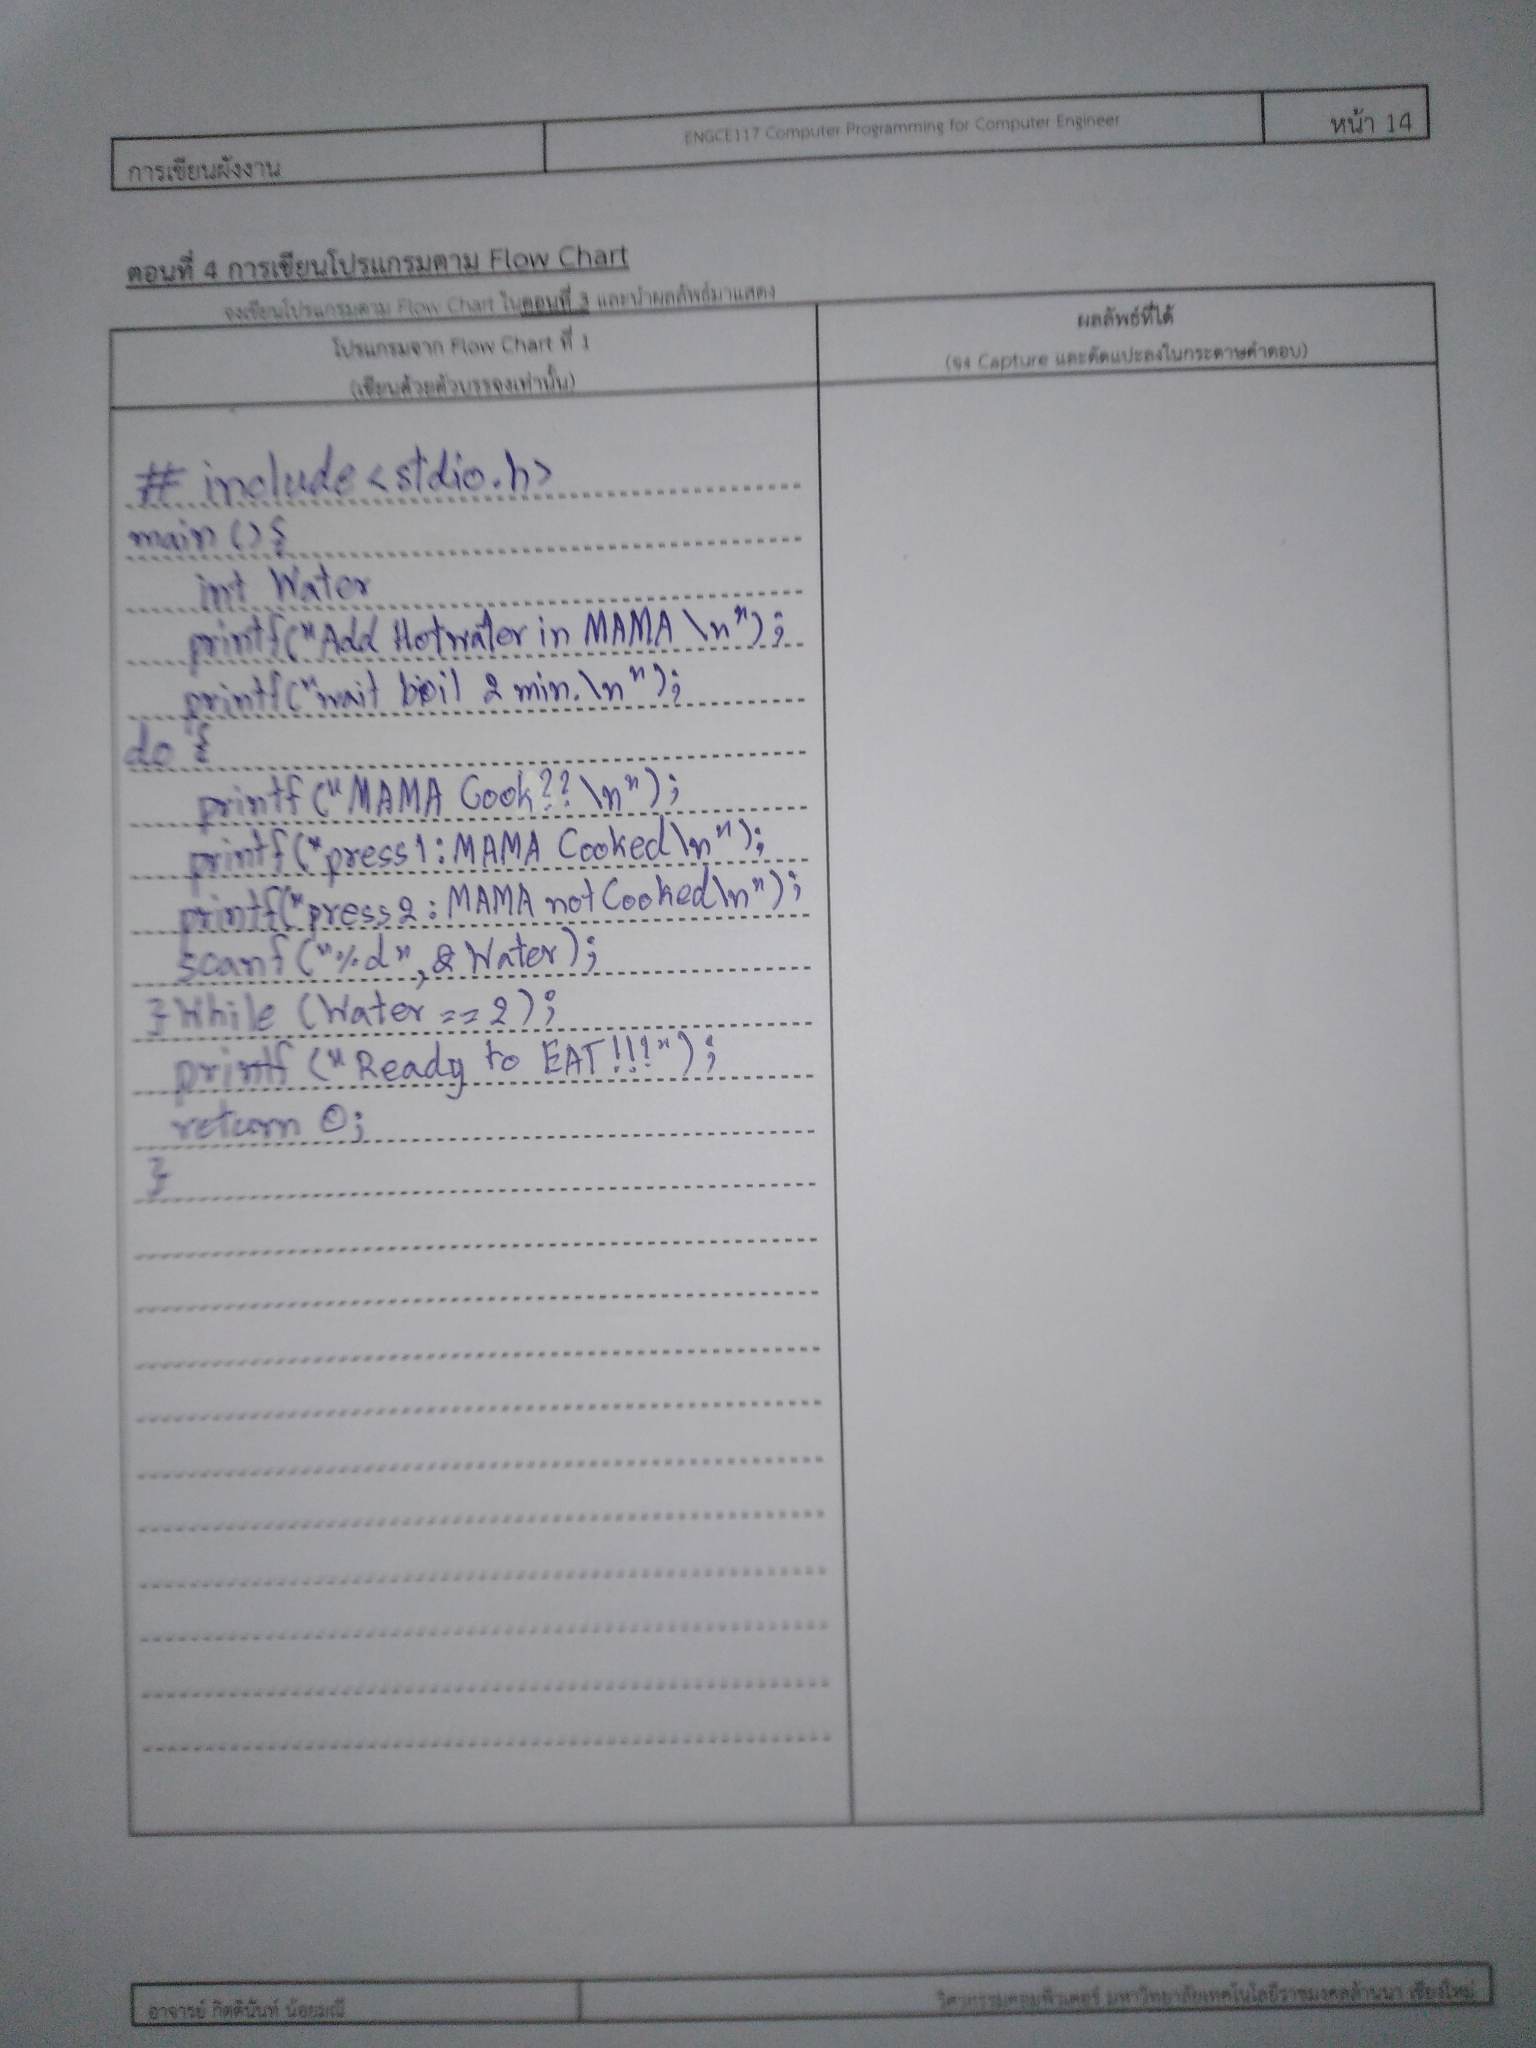 การเขียนผังงาน
ENGCE117 Computer Programming for Computer Engineer
หน้า 14
ตอนที่ 4 การเขียนโปรแกรมตาม Flow Chart
จงเขียนโปรแกรมตาม Flow Chart ในตอนที่ 3 และนำผลลัพธ์มาแสดง
โปรแกรมจาก Flow Chart ที่ 1
(เขียนด้วยตัวบรรจงเท่านั้น)
ผลลัพธ์ที่ได้
(จง Capture และตัดแปะลงในกระดาษคำตอบ)
# include <stdio.h>
main () {
int Water
printf("Add Hotwater in MAMA \n");
printf("wait boil 2 min.\n");
do {
printf("MAMA Cook?? \n");
printf("press1: MAMA Cooked\n");
printf("press2: MAMA not Cooked\n");
scanf("%d", & Water);
} While (Water == 2);
printf ("Ready to EAT!!!");
return 0;
}
อาจารย์ กิตตินันท์ น้อยมณี
วิศวกรรมคอมพิวเตอร์ มหาวิทยาลัยเทคโนโลยีราชมงคลล้านนา เชียงใหม่